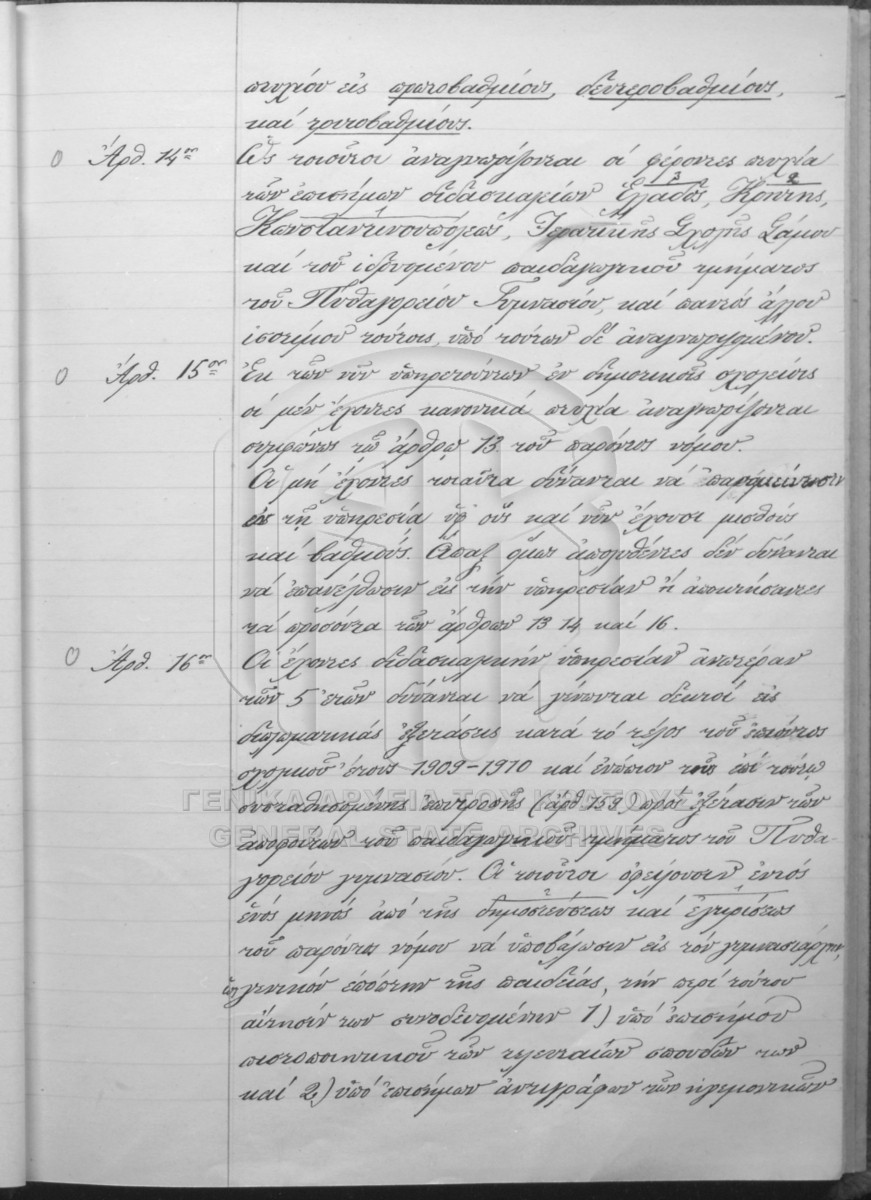 πτυχίου εἰς πρωτοβαθμίους, δευτεροβαθμίους,
καί τριτοβαθμίους.
Ἄρθ. 14ον Ὡς τοιοῦτοι ἀναγνωρίζονται οἱ φέροντες πτυχία
τῶν ἐπισήμων διδασκαλείων Ἑλλάδος, Κρήτης,
3 2
Κωνσταντινουπόλεως, Ἱερατικῆς Σχολῆς Σάμου
καί τοῦ ἱδρυομένου παιδαγωγικοῦ τμήματος
τοῦ Πυθαγορείου Γυμνασίου, καί παντός ἄλλου
ἰσοτίμου τούτοις, ὑπό τούτων δέ ἀναγνωριζομένου.
Ἄρθ. 15ον Ἐκ τῶν νῦν ὑπηρετούντων ἐν δημοτικοῖς σχολείοις
οἱ μέν ἔχοντες κανονικά πτυχία ἀναγνωρίζονται
συμφώνως τῷ ἄρθρῳ 13 τοῦ παρόντος νόμου.
Οἱ μή ἔχοντες τοιαῦτα δύνανται νά παραμείνωσιν
ἐν τῇ ὑπηρεσίᾳ ὑφ' οὕς καί νῦν ἔχουσι μισθούς
καί βαθμούς. Ἅπαξ ὅμως ἀπολυθέντες δέν δύνανται
νά ἐπανέλθωσιν εἰς τήν ὑπηρεσίαν ἤ ἀποκτήσαντες
τά προσόντα τῶν ἄρθρων 13 14 καί 16.
Ἄρθ. 16ον Οἱ ἔχοντες διδασκαλικήν ὑπηρεσίαν ἀνωτέραν
τῶν 5 ἐτῶν δύνανται νά γίνωνται δεκτοί εἰς
διπλωματικάς ἐξετάσεις κατά τό τέλος τοῦ ἐπιόντος
σχολικοῦ ἔτους 1909-1910 καί ἐνώπιον τῆς ἐπί τούτῳ
συσταθησομένης ἐπιτροπῆς (ἄρθ 159) πρός ἐξέτασιν τῶν
ἀποφοίτων τοῦ παιδαγωγικοῦ τμήματος τοῦ Πυθα-
γορείου γυμνασίου. Οἱ τοιοῦτοι ὀφείλουσιν ἐντός
ἑνός μηνός ἀπό τῆς δημοσιεύσεως καί ἐγκρίσεως
τοῦ παρόντος νόμου νά ὑποβάλωσιν εἰς τόν γυμνασιάρχην,
ὡς γενικόν ἐπόπτην τῆς παιδείας, τήν περί τούτου
αἴτησίν των συνοδευομένην 1) ὑπό ἐπισήμου
πιστοποιητικοῦ τῶν τελευταίων σπουδῶν των
καί 2) ὑπό ἐπισήμων ἀντιγράφων τῶν ἡγεμονικῶν
ΓΕΝΙΚΑ ΑΡΧΕΙΑ ΤΟΥ ΚΡΑΤΟΥΣ
GENERAL STATE ARCHIVES